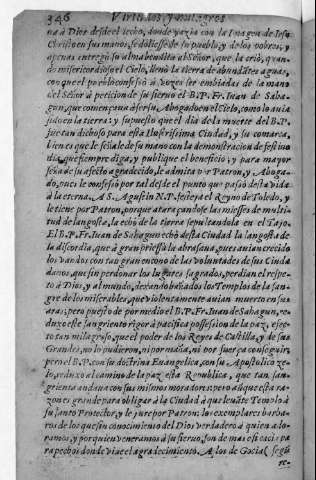 346 Virtudes, y milagros
na à Dios desde el lecho, donde yazia con la Imagen de Iesu
Christo en sus manos, se doliesse de su pueblo, y de los pobres; y
apenas entregò su alma bendita al Señor, que la criò, quan-
do misericordioso el Cielo, llenò la tierra de abundātes aguas,
con que el pueblo confessò à vozes ser embiadas de la mano
del Señor à peticion de su siervo el B.P.Fr. Iuan de Saha-
gun, que començava à ser su Abogado en el Cielo, como lo avia
sido en la tierra: y supuesto que el dia de la muerte del B.P.
fue tan dichoso para esta Ilustrissima Ciudad, y su comarca,
bien es que le señale de su mano con la demonstracion de festivo
dia, que siempre diga, y publique el beneficio; y para mayor
seña de su afecto agradecido, le admita por Patron, y Aboga-
do, pues le confessò por tal desde el punto que passò desta vida
à la eterna. A S. Agustin N.P. festeja el Reyno de Toledo, y
le tiene por Patron, porque atarazandose las miesses de multi-
tud de langosta, la echò de la tierra sepultandola en el Tajo.
El B.P. Fr. Iuan de Sahagun echò desta Ciudad la langosta de
la discordia, que à gran priessa la abrasava, pues avian crecido
los vandos con tan gran encono de las voluntades de sus Ciuda
danos, que sin perdonar los lugares sagrados, perdian el respe-
to à Dios, y al mundo, dexando bañados los Templos de la san-
gre de los miserables, que violentamente avian muerto en sus
aras; pero puesto de por medio el B.P.Fr. Iuan de Sahagun, re-
duxo esse sangriento rigor à pacifica possession de la paz, efec-
to tan milagroso, que el poder de los Reyes de Castilla, y de sus
Grandes, no lo pudieron, ni por maña, ni por fuerça conseguir;
pero el B.P. con su doctrina Evangelica, con su Apostolico ze-
lo, reduxo al camino de la paz esta Republica, que tan san-
grienta andava con sus mismos moradores; pero aūque esta ra-
zon es grande para obligar à la Ciudad à que levāte Templo à
su santo Protector, y le jure por Patron; los exemplares barba-
ros de los que sin conocimiento del Dios verdadero à quien ado-
ramos, y por quien veneramos à su siervo, son de mas eficacia pa
ra pechos donde vive el agradecimiento. A los de